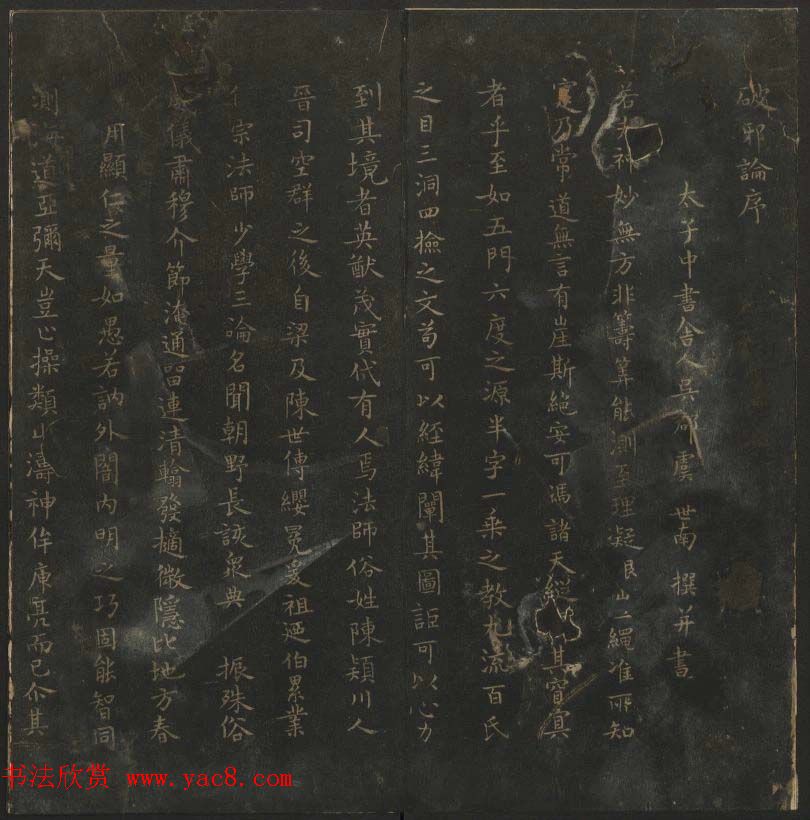 破邪論序
太子中書舍人吳郡虞世南撰并書
若夫神妙無方非籌筭能測至理凝繩准所知
寔乃常道無言有崖斯絕安可馮諸天縱其窅冥
者乎至如五門六度之源半字一乘之教九流百氏
之目三洞四檢之文苟可以經緯闡其圖詎可以心力
到其境者英猷茂實代有人焉法師俗姓陳潁川人
晉司空群之後自梁及陳世傳纓冕爰祖迺伯累業
宗法師少學三論名聞朝野長該眾典振殊俗
儀肅穆介節淹通留連清翰發擿微隱比地方春
用顯仁之量如愚若訥外闇內明之巧固能智同
測海道亞彌天豈止操類山濤神侔庾亮而已介其
书法欣赏 www.yac8.com